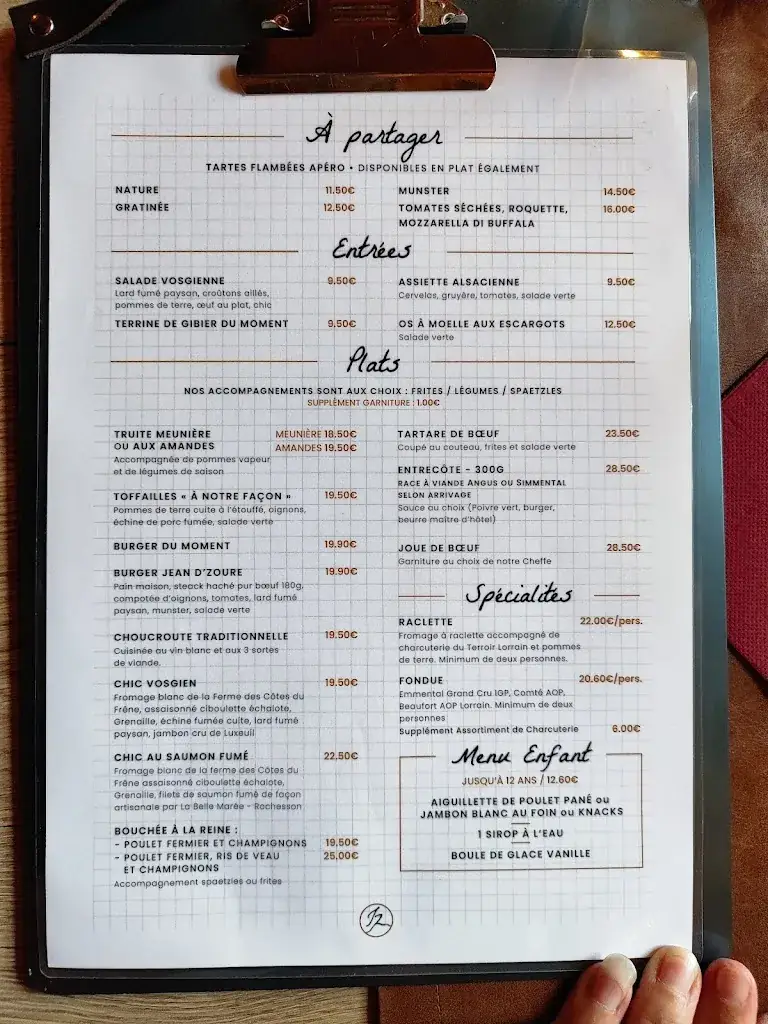 À partager
TARTES FLAMBÉES APÉRO • DISPONIBLES EN PLAT ÉGALEMENT
NATURE 11.50€
GRATINÉE 12.50€
MUNSTER 14.50€
TOMATES SÉCHÉES, ROQUETTE, 16.00€
MOZZARELLA DI BUFFALA
Entrées
SALADE VOSGIENNE 9.50€
Lard fumé paysan, croûtons aillés,
pommes de terre, œuf au plat, chic
TERRINE DE GIBIER DU MOMENT 9.50€
ASSIETTE ALSACIENNE 9.50€
Cervelas, gruyère, tomates, salade verte
OS À MOELLE AUX ESCARGOTS 12.50€
Salade verte
Plats
NOS ACCOMPAGNEMENTS SONT AUX CHOIX : FRITES / LÉGUMES / SPAETZLES
SUPPLÉMENT GARNITURE : 1.00€
TRUITE MEUNIÈRE MEUNIÈRE 18.50€
OU AUX AMANDES AMANDES 19.50€
Accompagnée de pommes vapeur
et de légumes de saison
TOFFAILLES « À NOTRE FAÇON » 19.50€
Pommes de terre cuite à l'étouffé, oignons,
échine de porc fumée, salade verte
BURGER DU MOMENT 19.90€
BURGER JEAN D'ZOURE 19.90€
Pain maison, steack haché pur bœuf 180g,
compotée d'oignons, tomates, lard fumé
paysan, munster, salade verte
CHOUCROUTE TRADITIONNELLE 19.50€
Cuisinée au vin blanc et aux 3 sortes
de viande.
CHIC VOSGIEN 19.50€
Fromage blanc de la Ferme des Côtes du
Frêne, assaisonné ciboulette échalote,
Grenaille, échine fumée cuite, lard fumé
paysan, jambon cru de Luxeuil
CHIC AU SAUMON FUMÉ 22.50€
Fromage blanc de la ferme des Côtes du
Frêne assaisonné ciboulette échalote,
Grenaille, filets de saumon fumé de façon
artisanale par La Belle Marée - Rochesson
BOUCHÉE À LA REINE :
- POULET FERMIER ET CHAMPIGNONS 19,50€
- POULET FERMIER, RIS DE VEAU 25,00€
ET CHAMPIGNONS
Accompagnement spaetzles ou frites
TARTARE DE BŒUF 23.50€
Coupé au couteau, frites et salade verte
ENTRECÔTE - 300G 28.50€
RACE À VIANDE ANGUS OU SIMMENTAL
SELON ARRIVAGE
Sauce au choix (Poivre vert, burger,
beurre maître d'hôtel)
JOUE DE BŒUF 28.50€
Garniture au choix de notre Cheffe
Spécialités
RACLETTE 22.00€/pers.
Fromage à raclette accompagné de
charcuterie du Terroir Lorrain et pommes
de terre. Minimum de deux personnes.
FONDUE 20.60€/pers.
Emmental Grand Cru IGP, Comté AOP,
Beaufort AOP Lorrain. Minimum de deux
personnes
Supplément Assortiment de Charcuterie 6.00€
Menu Enfant
JUSQU'À 12 ANS / 12.60€
AIGUILLETTE DE POULET PANÉ ou
JAMBON BLANC AU FOIN ou KNACKS
1 SIROP À L'EAU
BOULE DE GLACE VANILLE
JZ